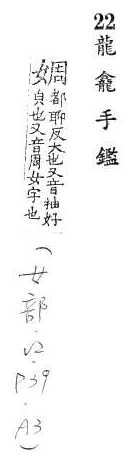 22 龍龕手鑑
婤 都聊反大也又音抽好
貞也又音周女字也
(女部.V2.P39.A3)